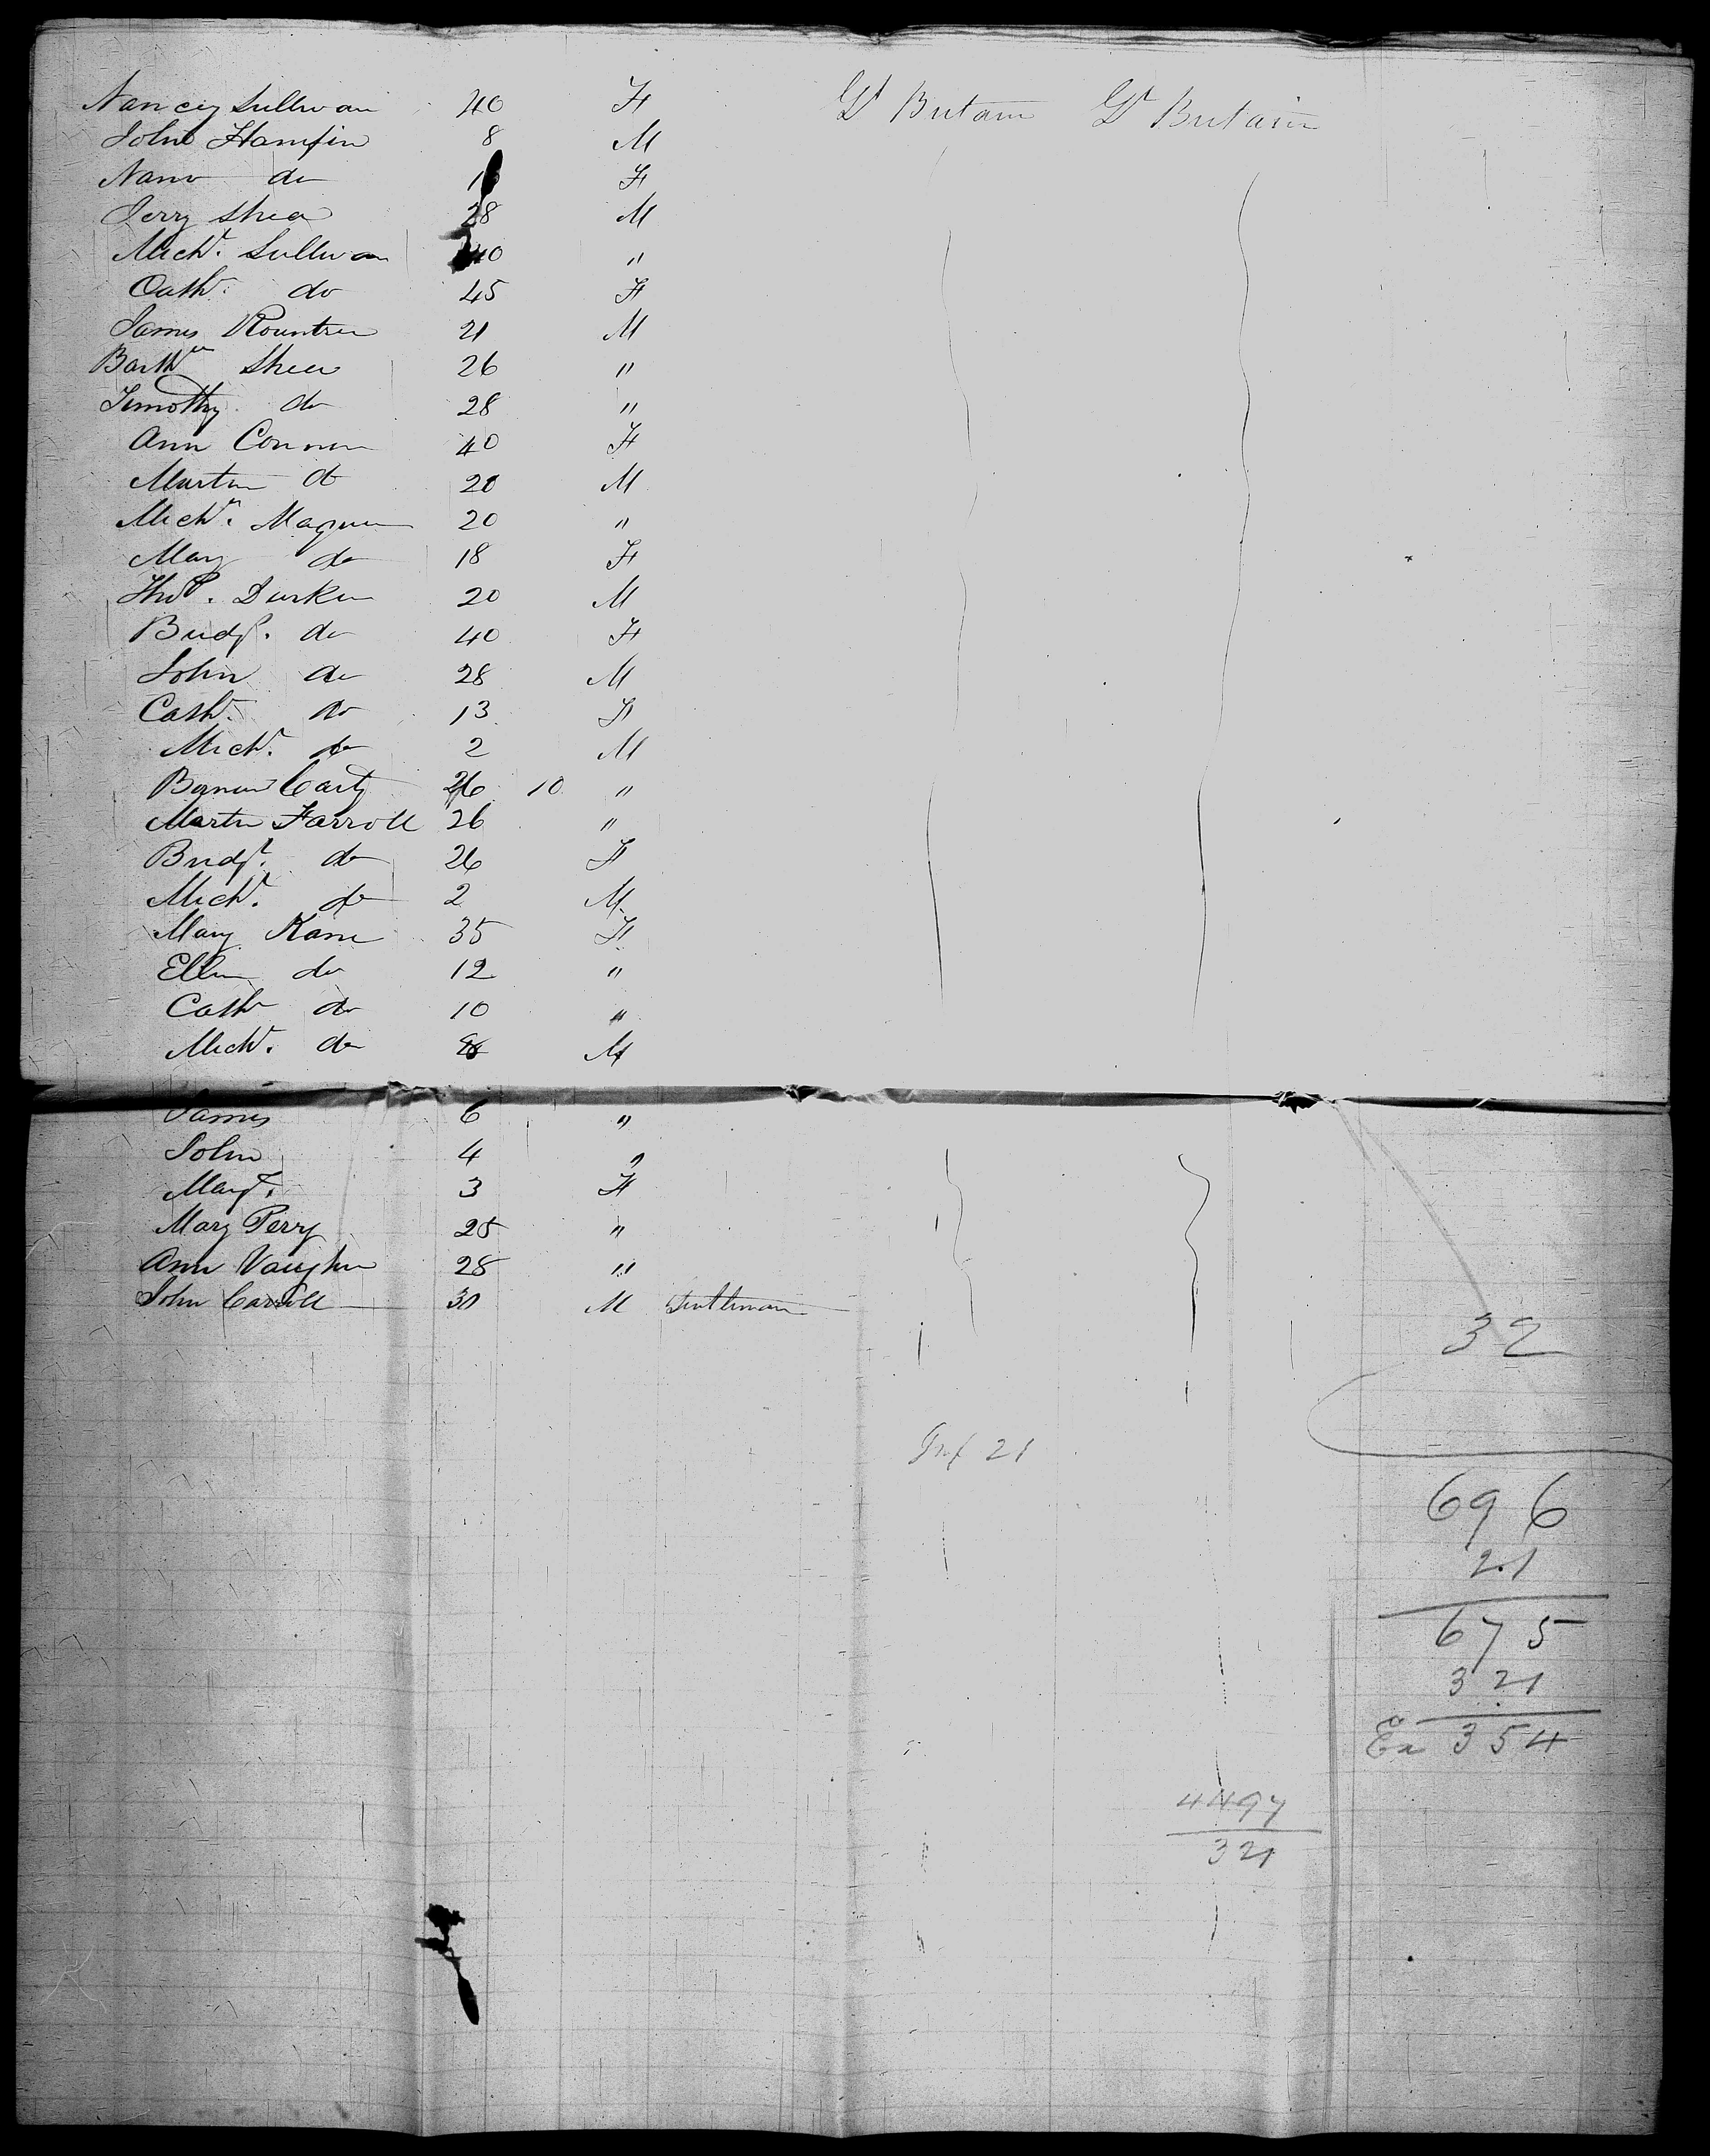 Nancy Sullivan 40 F Gt Britain Gt Britain
John Hanifin 8 M
Nano do F
Jerry Shea 28 M
Michl. Sullivan 40 "
Cath. do 45 F
James Rountree 21 M
Barthw Shea 26 "
Timothy do 28 "
Ann Connor 40 F
Martin do 20 M
Michl. Maguire 20 "
Mary do 18 F
Thos. Durkin 20 M
Bridgt. do 40 F
John do 28 M
Cath. do 13 F
Michl. do 2 M
Carty 26 10 "
Martin Farrell 26 "
Bridgt. do 26 F
Michl. do 2 M
Mary Kane 35 F
Ellen do 12 "
Cath do 10 "
Michl. do 8 M
James 6 "
John 4 "
Margt. 3 F
Mary Perry 25 "
Ann Vaughn 28 "
John Carroll 30 M Gentleman
32
Inf 21
696
21
675
321
Ex 354
4497
321